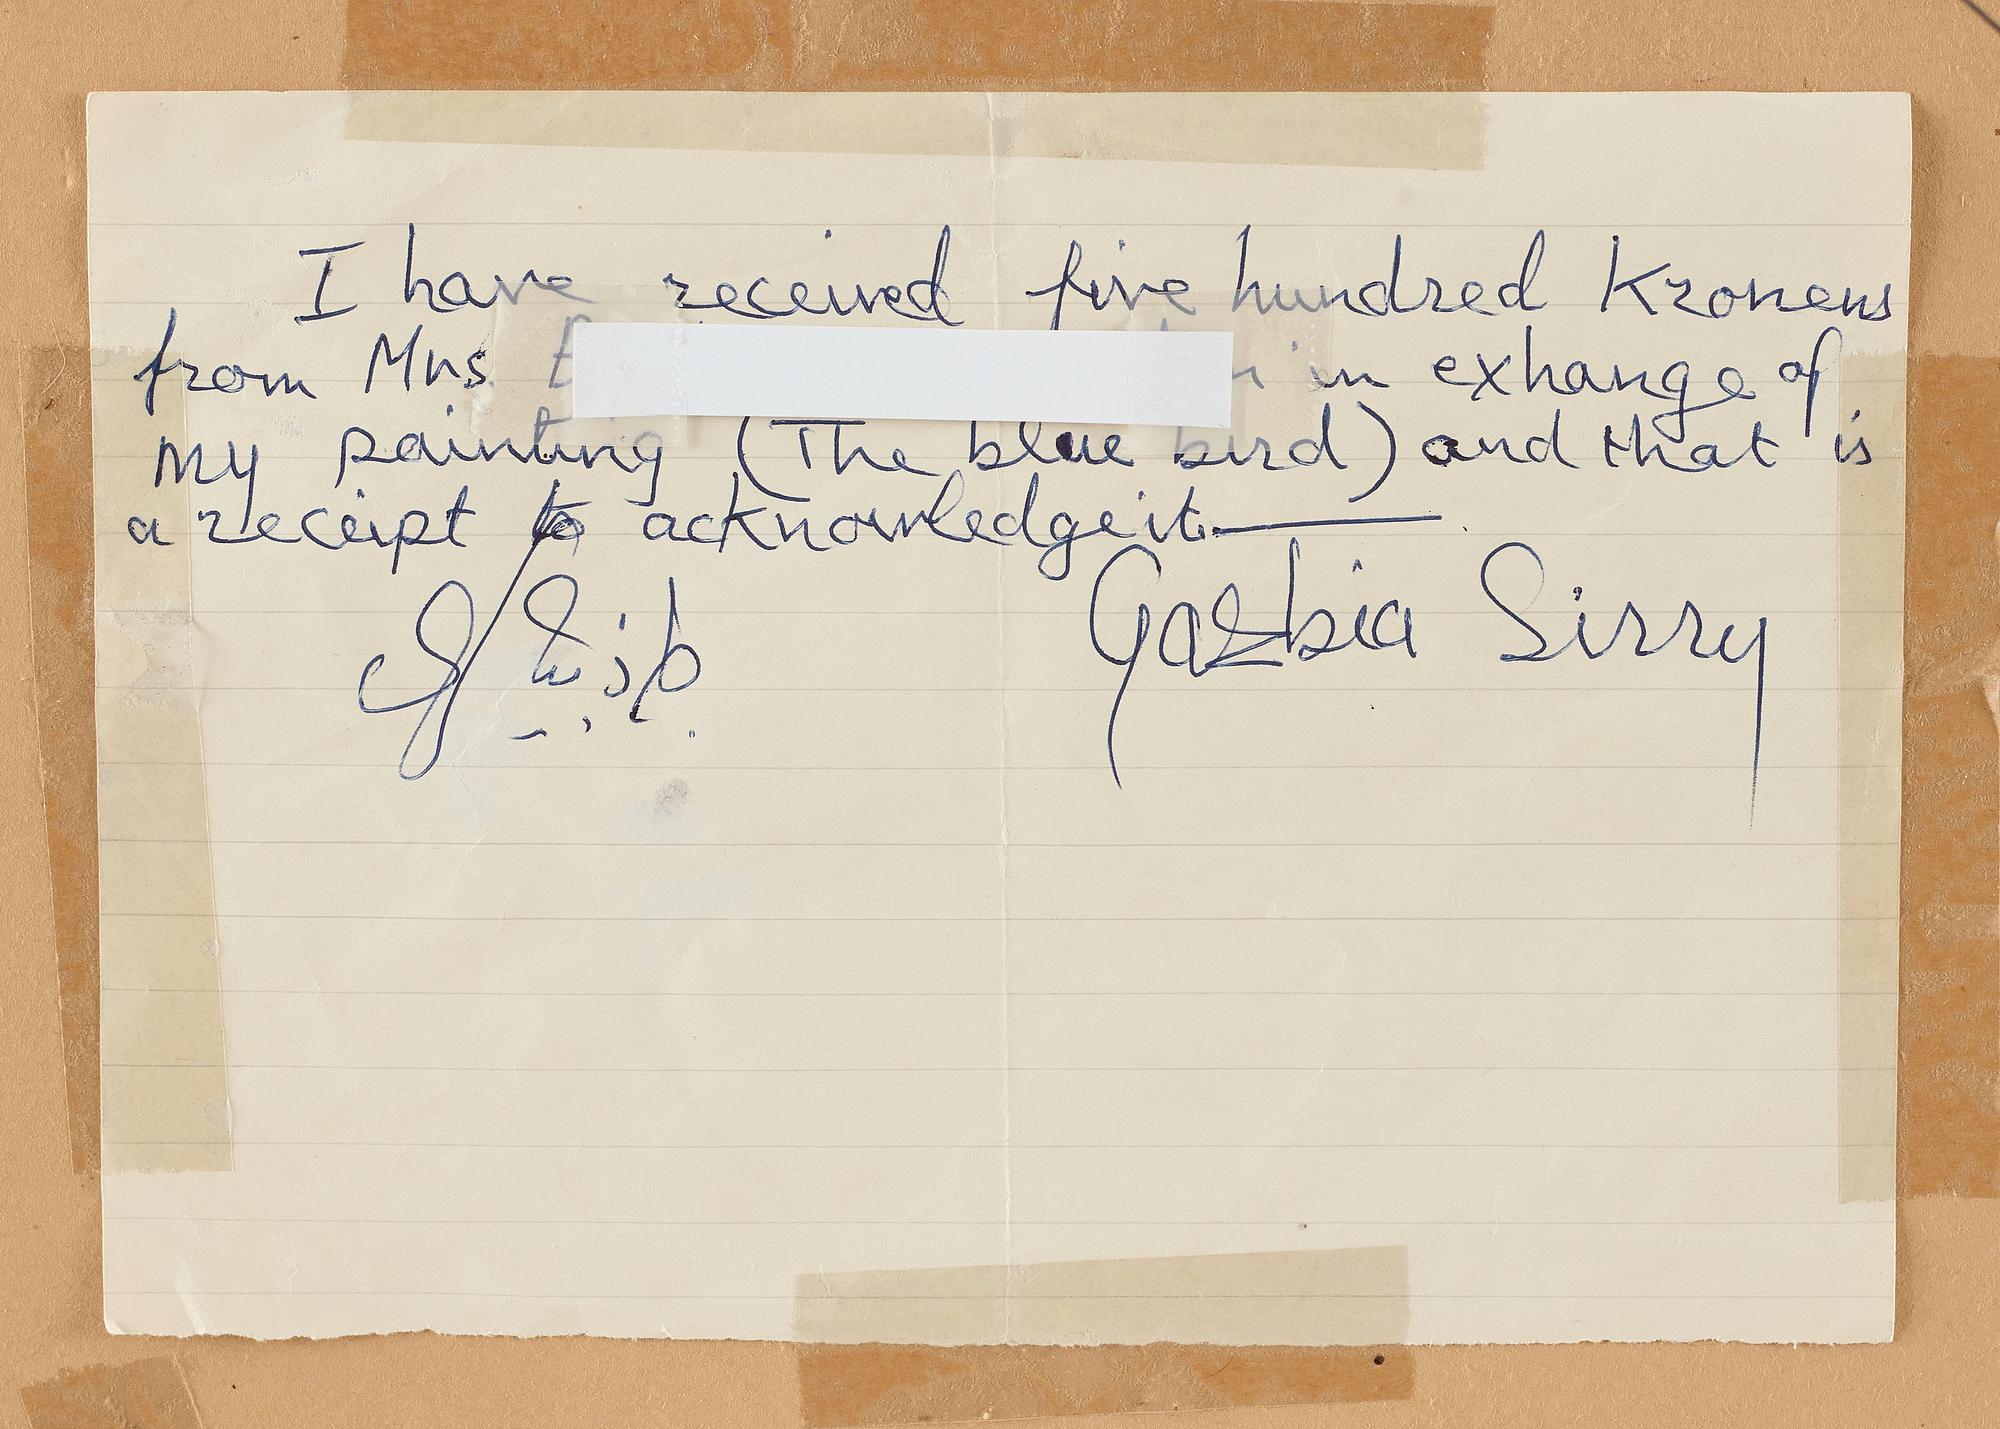 I have received five hundred Kronens
from Mrs in exhange of
my painting (The blue bird) and that is
a receipt to acknowledge it.
Gazbia Sirry